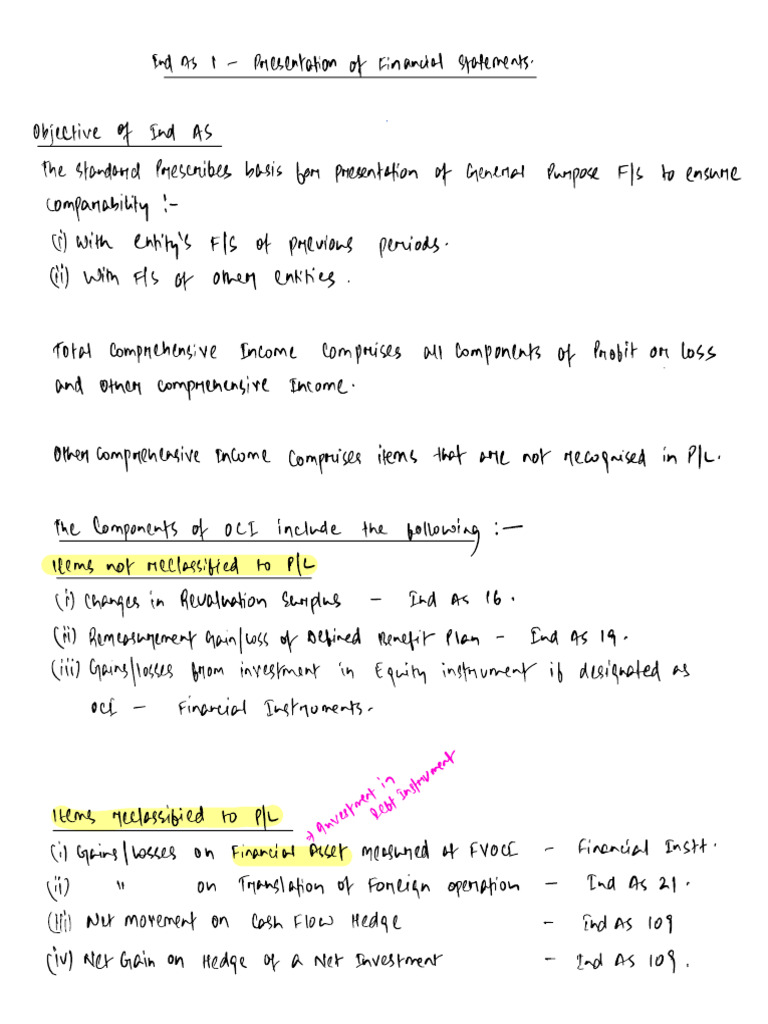 Ind AS 1 - Presentation of Financial Statements.
Objective of Ind AS
The Standard Prescribes basis for presentation of General Purpose F/S to ensure
Comparability :-
(i) With Entity's F/S of previous periods.
(ii) With F/S of other entities.
Total Comprehensive Income Comprises all Components of Profit or Loss
and other comprehensive Income.
Other Comprehensive Income Comprises items that are not recognised in P/L.
The Components of OCI include the following :-
Items not reclassified to P/L
(i) Changes in Revaluation Surplus - Ind As 16.
(ii) Remeasurement Gain/Loss of Defined Benefit Plan - Ind AS 19.
(iii) Gains/losses from investment in Equity instrument if designated as
OCI - Financial Instruments.
→ Investment in
Debt Instrument
Items reclassified to P/L
(i) Gains/Losses on Financial Asset measured at FVOCI - Financial Instt.
(ii) " on Translation of Foreign operation - Ind AS 21.
(iii) Net movement on Cash Flow Hedge - Ind AS 109
(iv) Net Gain on Hedge of a Net Investment - Ind AS 109.